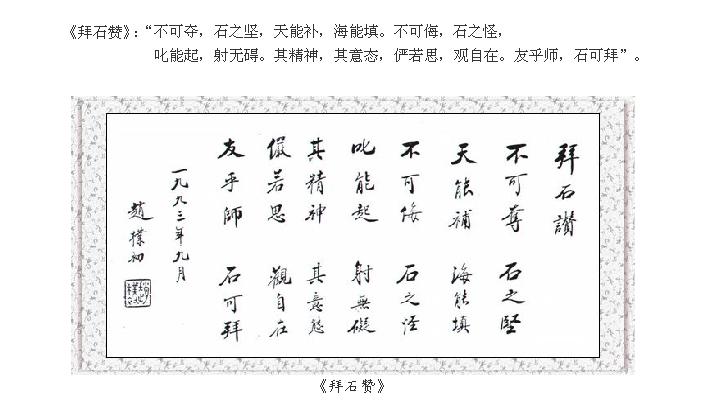 《拜石赞》：“不可夺，石之坚，天能补，海能填。不可侮，石之怪，
叱能起，射无碍。其精神，其意态，俨若思，观自在。友乎师，石可拜”。
拜石讚
不可奪 石之堅
天能補 海能填
不可侮 石之怪
叱能起 射無礙
其精神 其意態
儼若思 觀自在
友乎師 石可拜
一九九三年九月
趙樸初
《拜石赞》